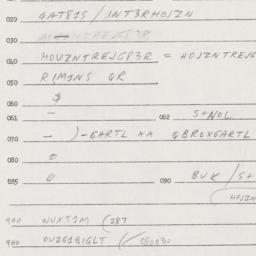 020 GAT81S / INT3RHOJZN
030
040 MOVZNTREJGP3R = HOJZNTREJG
050 RIMINS QR
060 $
061 — 062 S+NOL
070 — )-GARTL XX QBROXGARTL
080 0
085 0 090 BUK / S+
(HOJZN
900 NUXT1M (287
900 OUZG1BIGLT (/080030